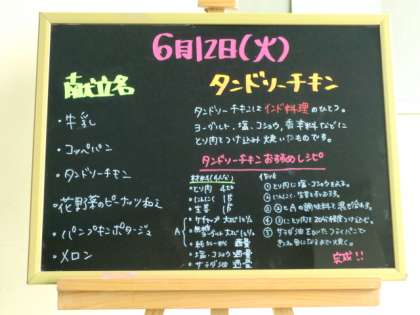 6月12日(火)
献立名
・牛乳
・コッペパン
・タンドリーチキン
・花野菜のピーナッツ和え
・パンプキンポタージュ
・メロン
タンドリーチキン
タンドリーチキンは インド料理 のひとつ。
ヨーグルト、塩、コショウ、香辛料などに
とり肉をつけ込み 焼いたものです。
タンドリーチキン おすすめレシピ
材料(4人分)
・とり肉 4枚
・にんにく 1片
・生姜 1片
A
・ケチャップ 大さじ
・無糖ヨーグルト 大さじ
・カレー粉 適量
・塩・コショウ 適量
・サラダ油 適量
作り方
① とり肉に塩・コショウをふる。
② にんにく、生姜をすりおろす。
③ ②とAの調味料を混ぜ合わせる。
④ ③にとり肉を20分程度つけ込む。
⑤ サラダ油をひいたフライパンで
完成!!